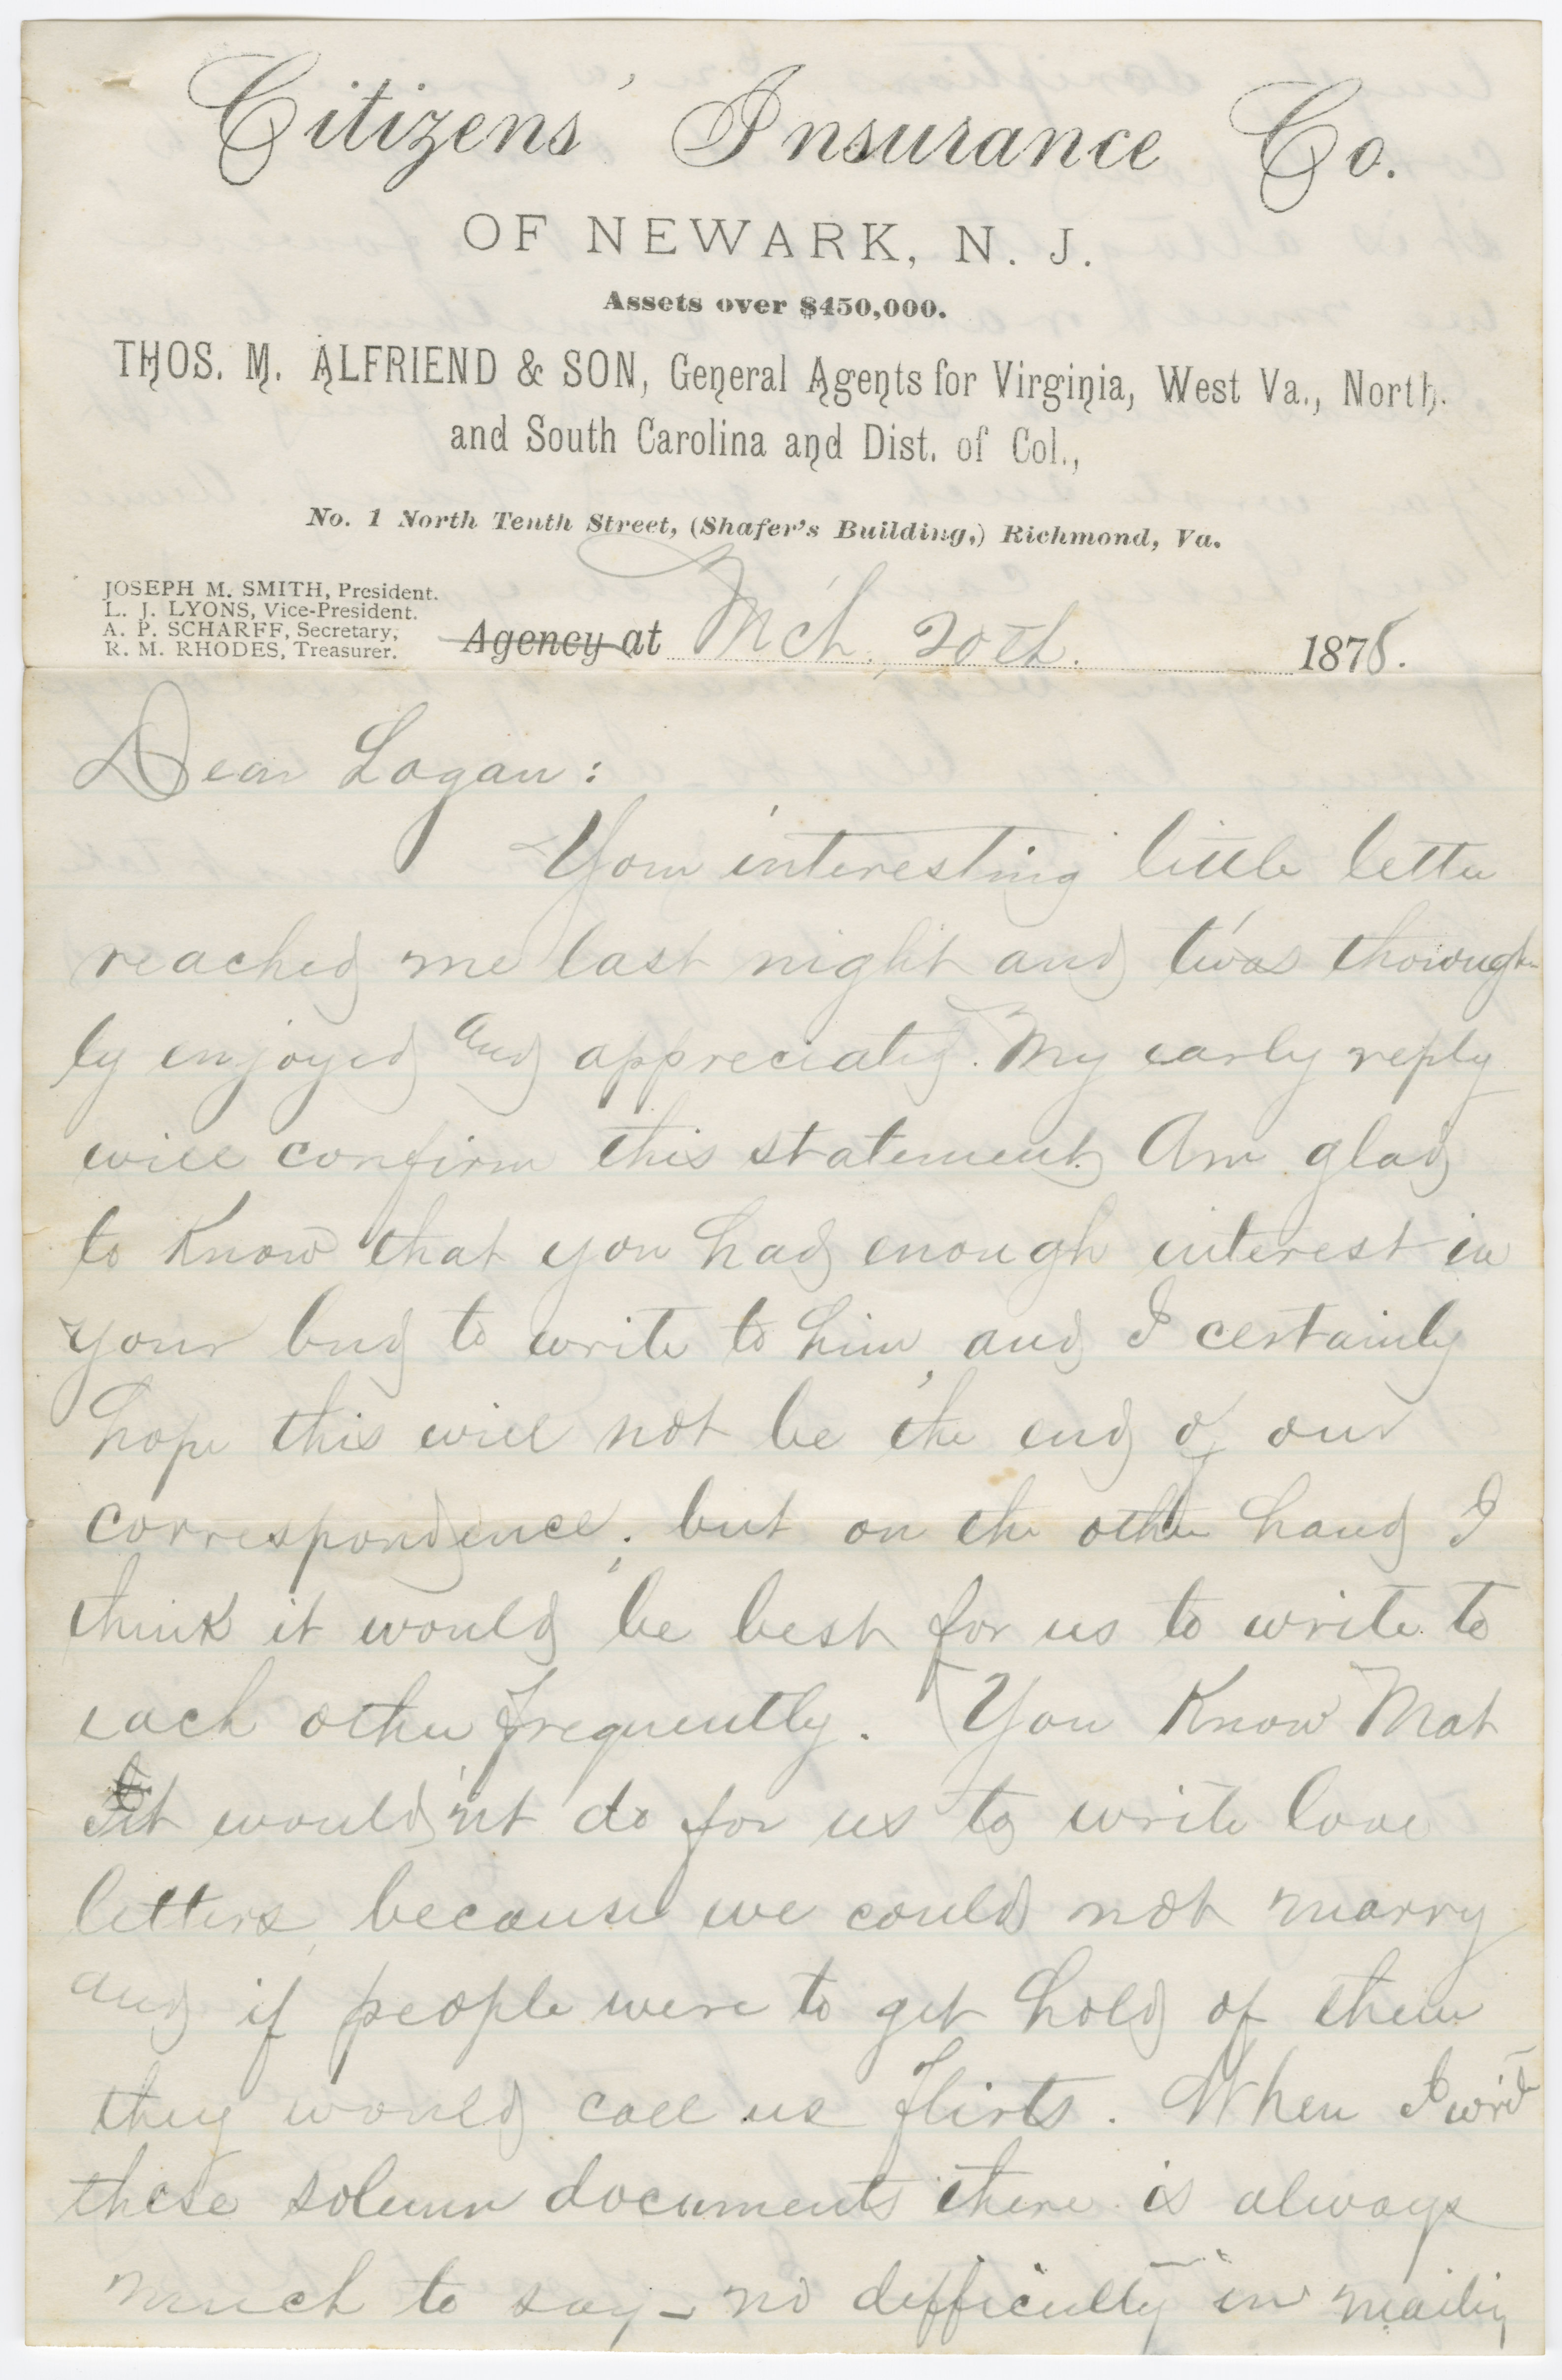 Citizens' Insurance Co.
OF NEWARK, N. J.
Assets over $450,000.
THOS. M. ALFRIEND & SON, General Agents for Virginia, West Va., North
and South Carolina and Dist. of Col.,
No. 1 North Tenth Street, (Shafer's Building,) Richmond, Va.
JOSEPH M. SMITH, President.
L. J. LYONS, Vice-President.
A. P. SCHARFF, Secretary,
R. M. RHODES, Treasurer.
Agency at Mch, 20th. 1878.
Dear Logan:
Your interesting little letter
reached me last night and t'was thorough-
ly enjoyed and appreciated. My early reply
will confirm this statement. Am glad
to know that you had enough interest in
your bud to write to him, and I certainly
hope this will not be the end of our
correspondence; but on the other hand I
think it would be best for us to write to
each other frequently. You know Mat
it would'nt do for us to write love
letters, because we could not marry
and if people were to get hold of them
they would call us flirts. When I write
these solemn documents there is always
much to say - no difficulty in mailing